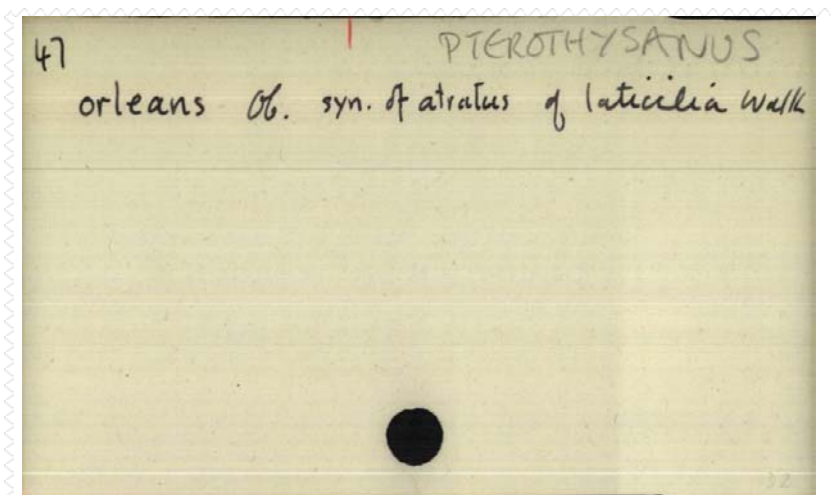 47
PTEROTHYSANUS
orleans Ob. syn. of atratus of laticilia Walk
32